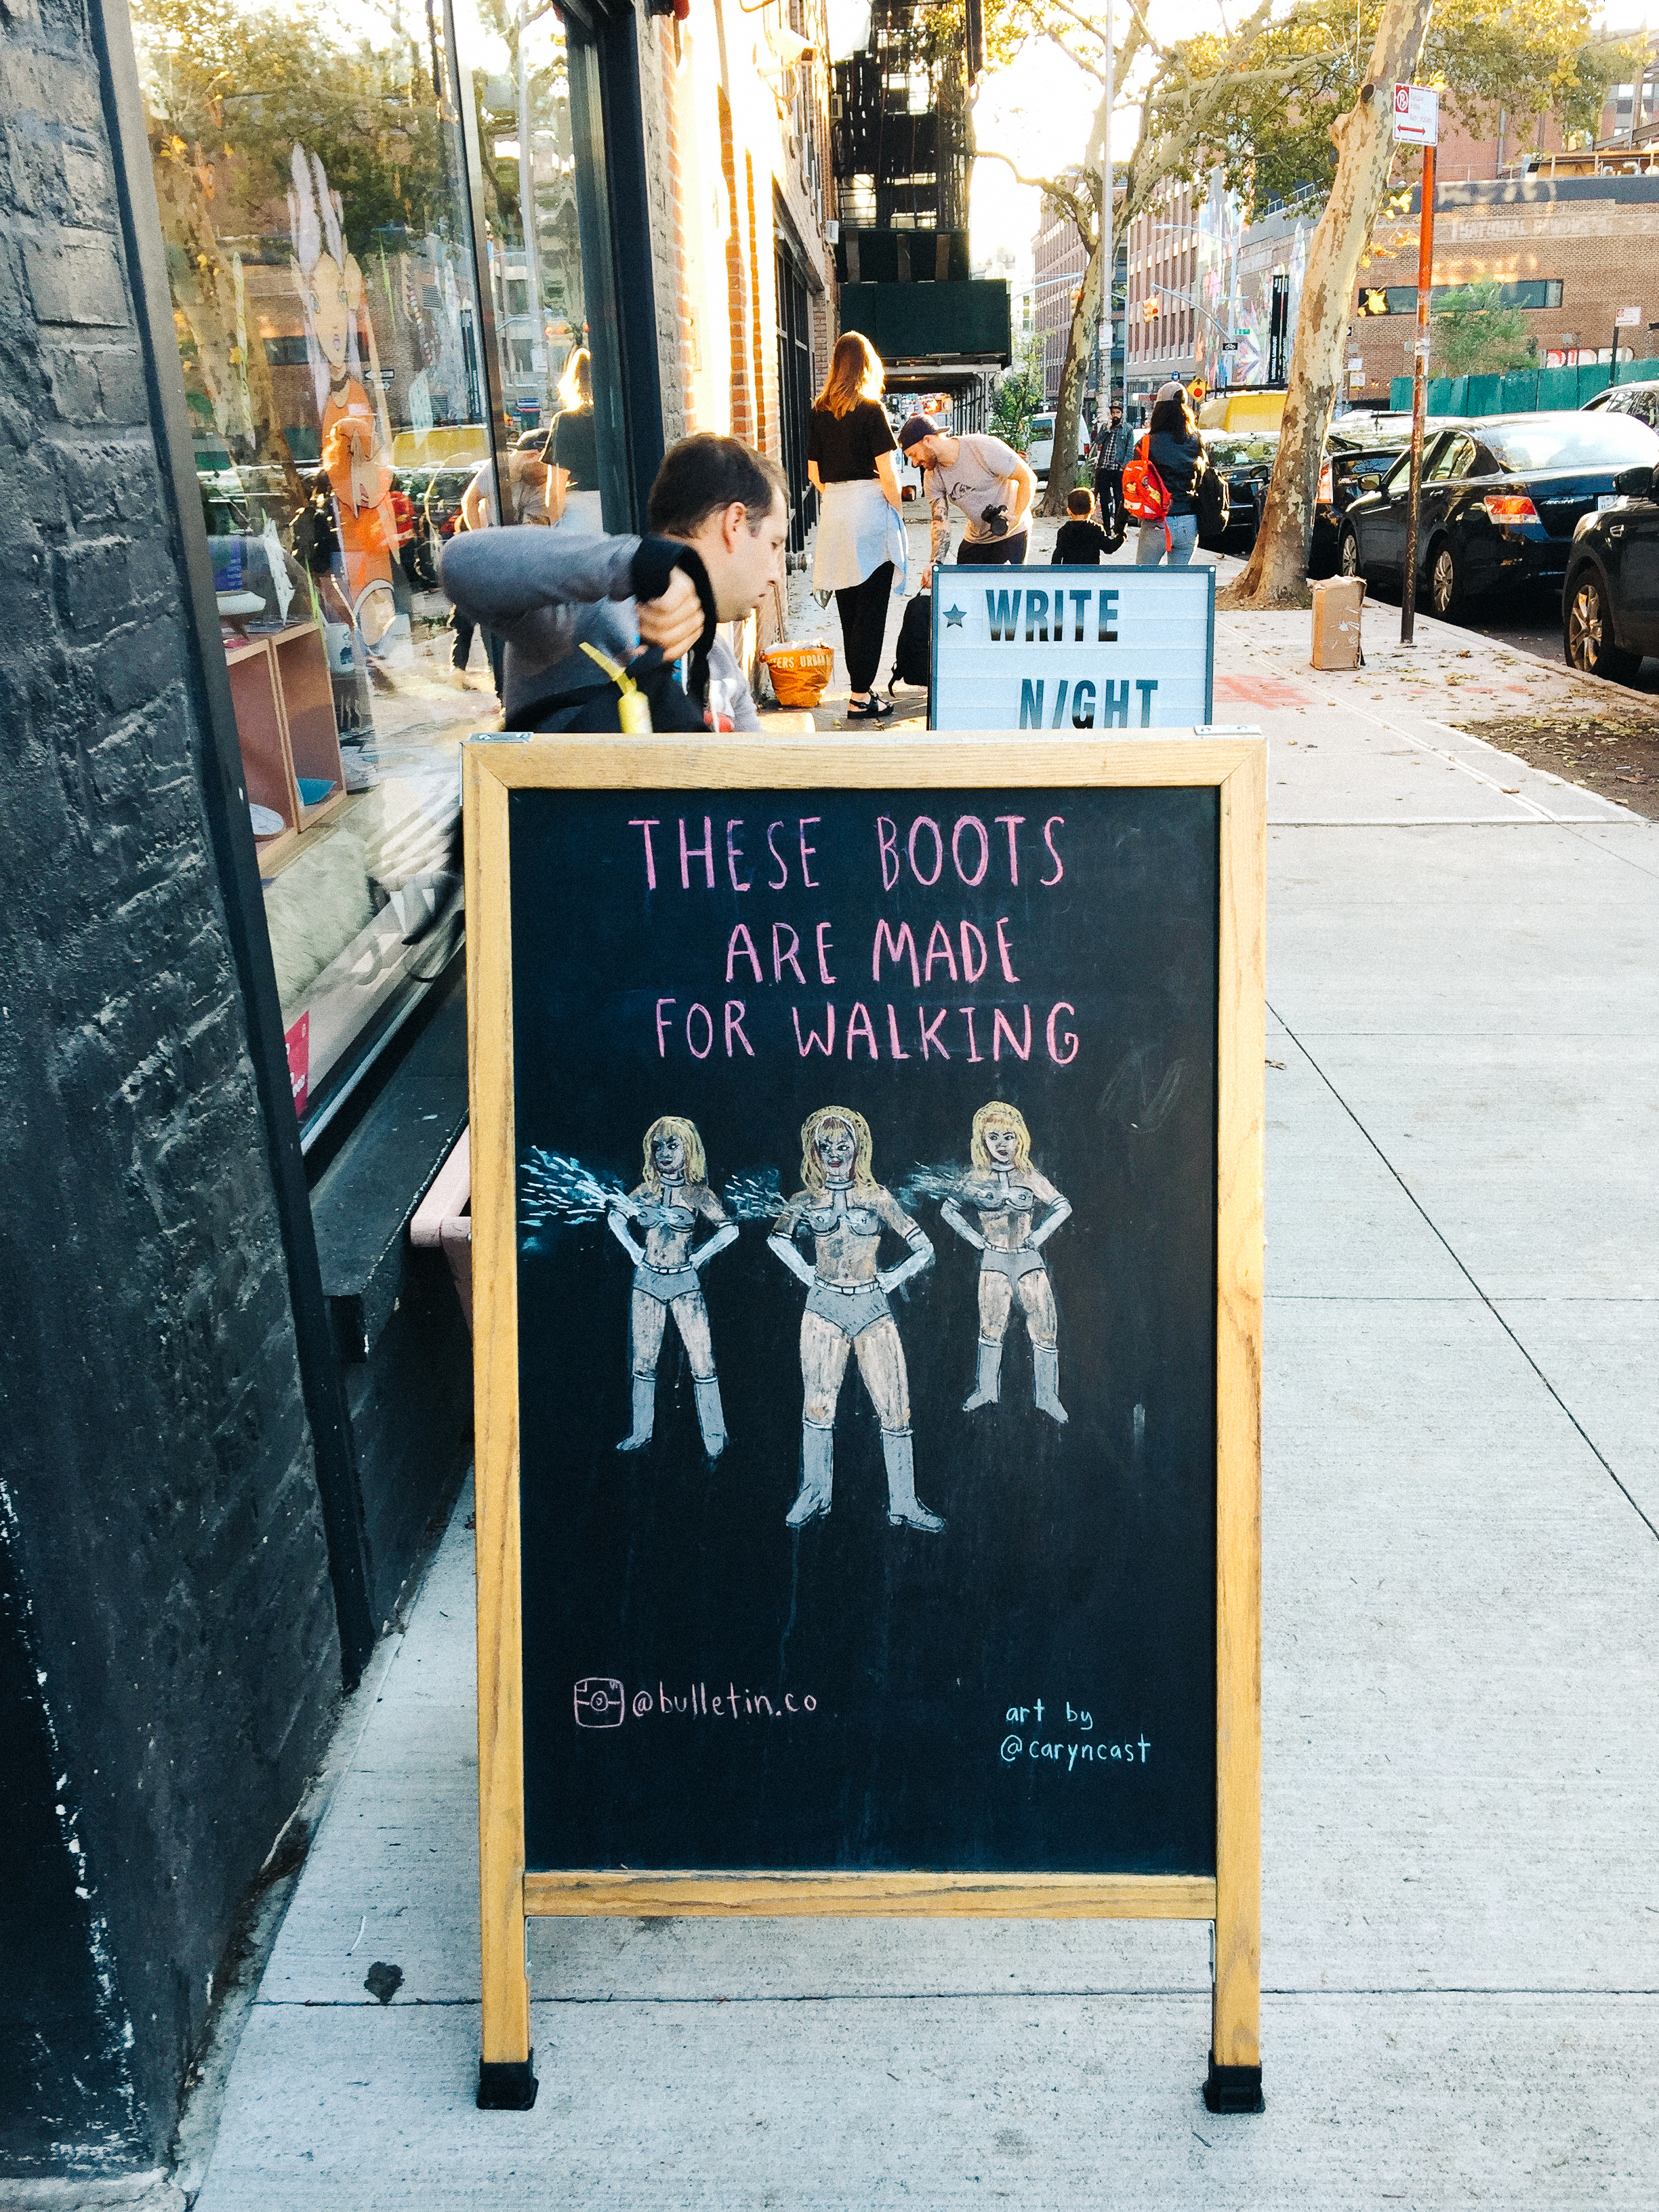 ★ WRITE
N/GHT
THESE BOOTS
ARE MADE
FOR WALKING
@bulletin.co
art by
@caryncast